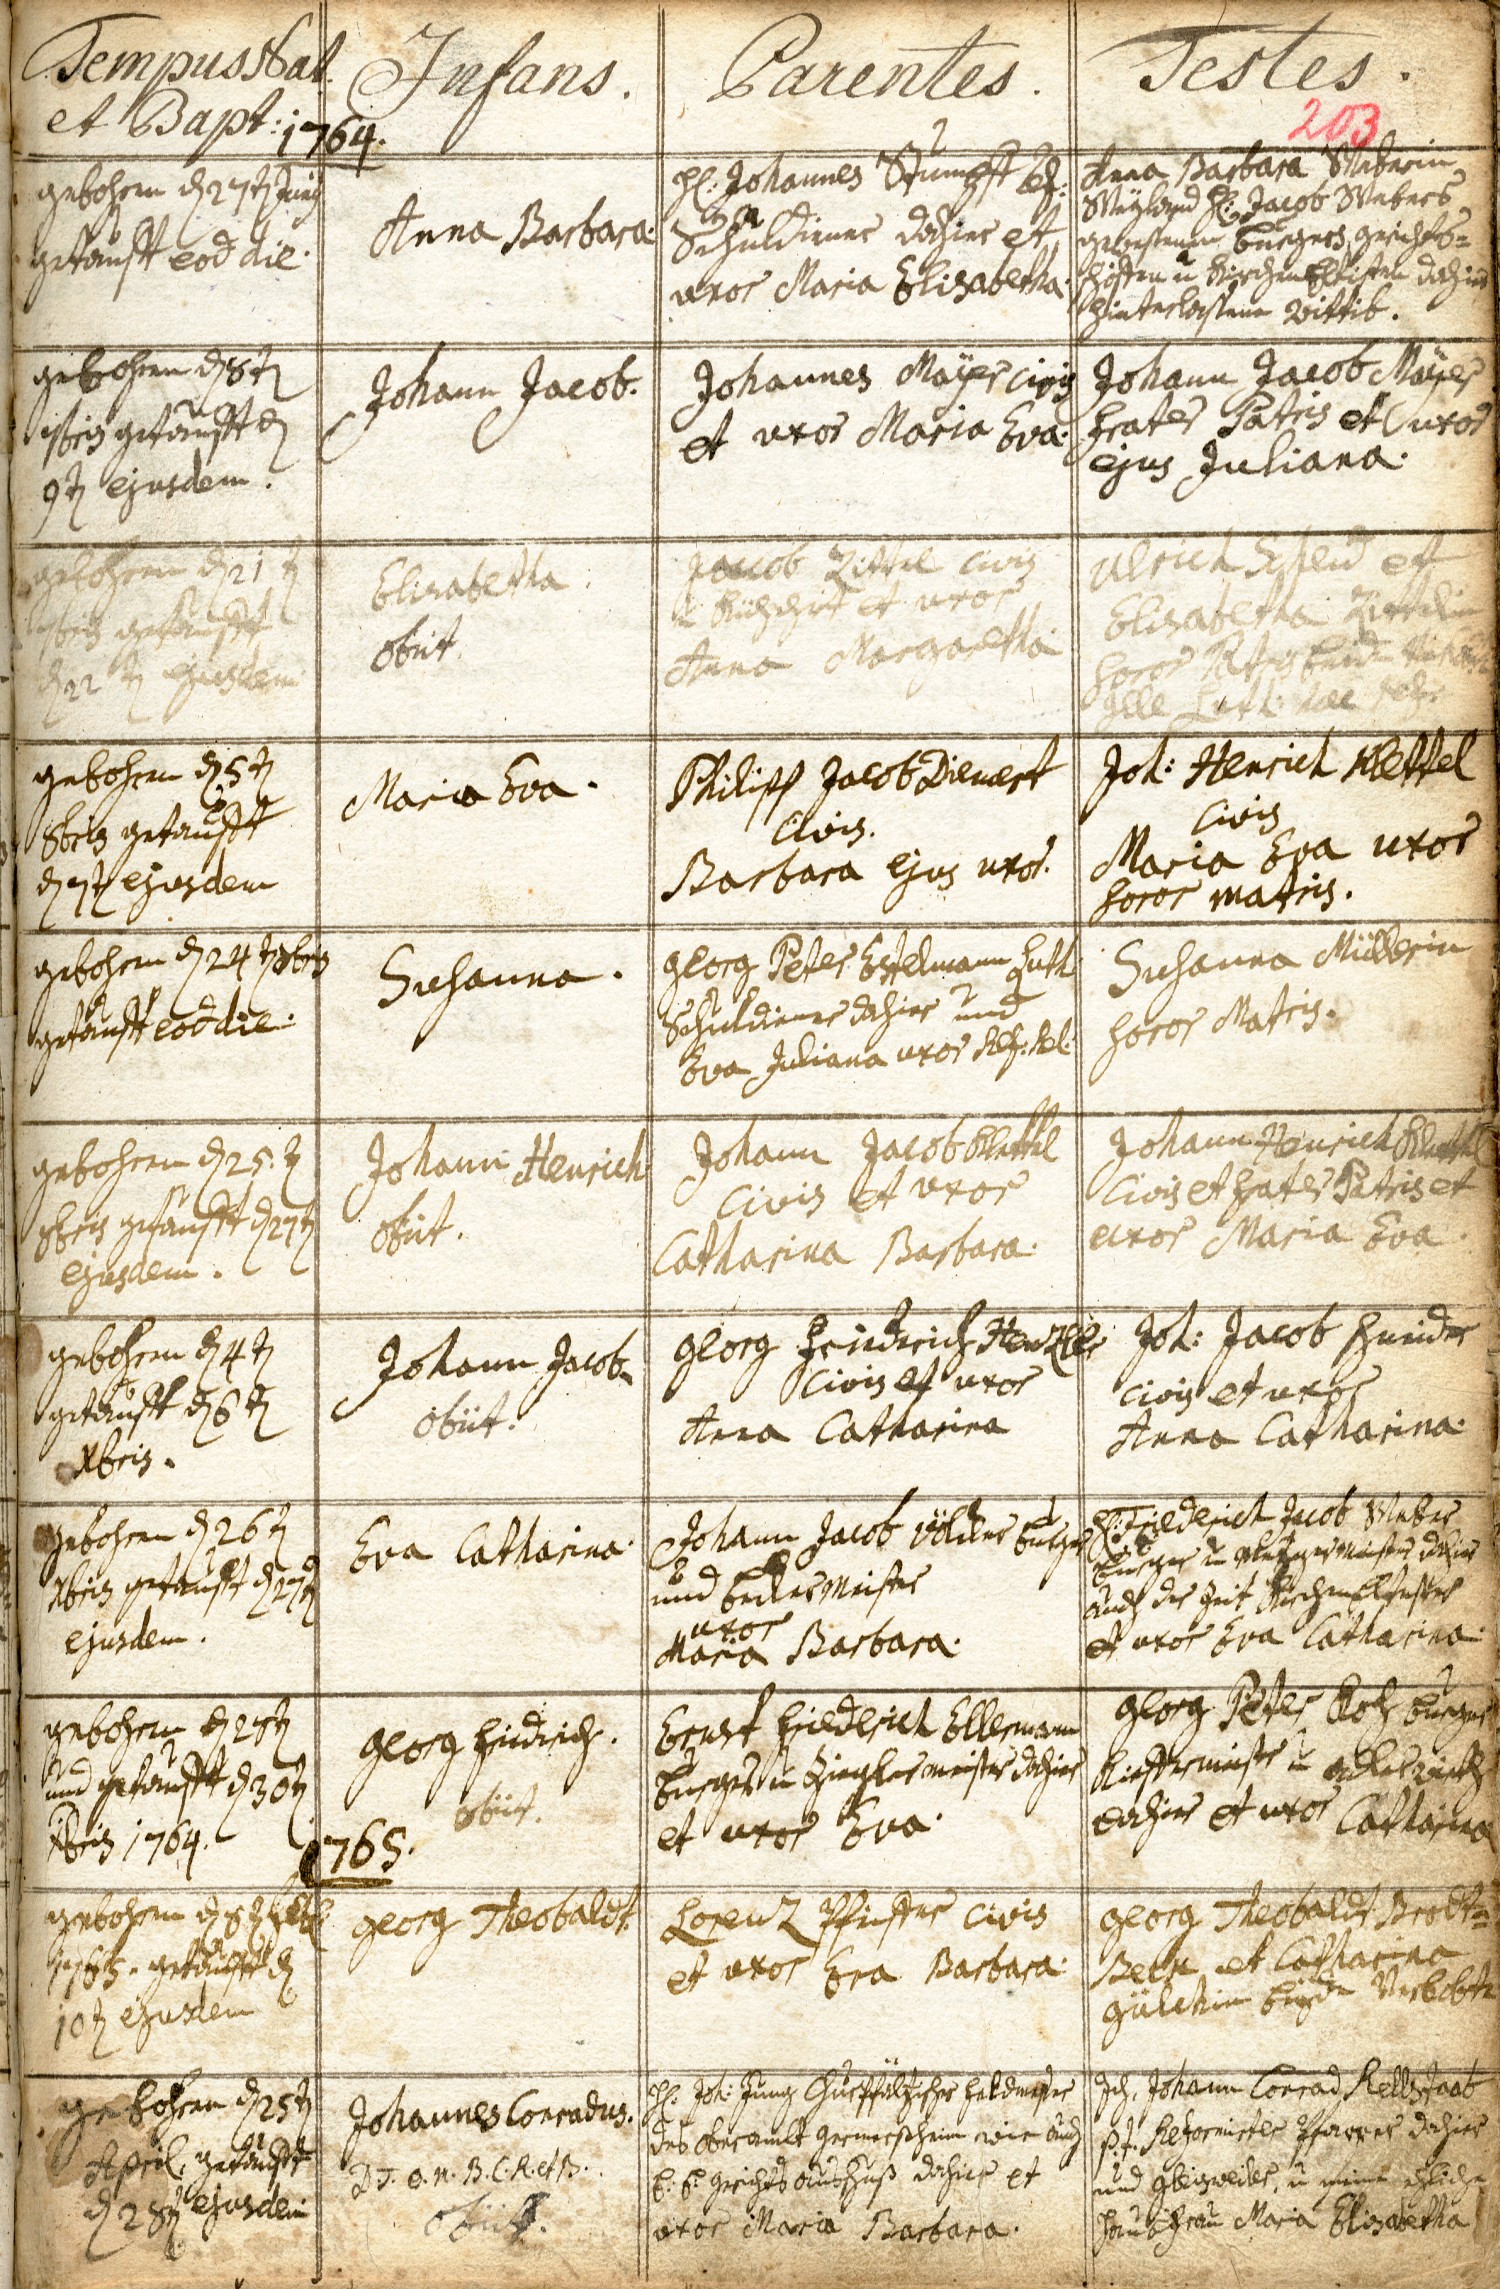 Tempus Nat.
et Bapt: 1764.
Infans.
Parentes.
Testes.
203
gebohren d 27t Junij
getaufft eod die.
Anna Barbara.
H: Johannes Stumpff ref:
Schuldiener dahier et
uxor Maria Elisabetha.
Anna Barbara Weberin
Weyland H: Jacob Webers
gewesenen burgers, gerichts-
schöffen u Kirchen Eltisten dahier
hinterlassene Wittib.
gebohren d 8t
getaufft d
9t ejusdem.
Johann Jacob.
Johannes Mayer civis
et uxor Maria Eva.
Johann Jacob Mayer
frater Patris et uxor
ejus Juliana.
gebohren d 21t
getaufft
d 22t ejusdem
Elisabetha.
obiit.
Jacob Zittel civis
et uxor
Anna Margaretha.
Ulrich et
Elisabetha Zittelin
soror Patris beide
Ille Luth:
gebohren d 5t
8bris getaufft
d 7t ejusdem
Maria Eva.
Philipp Jacob Dienert
civis.
Barbara ejus uxor.
Joh: Henrich Klettel
civis
Maria Eva uxor
soror matris.
gebohren d 24t 8bris
getaufft eod die.
Susanna.
Georg Peter Estelmann Luth
Schuldiener dahier und
Eva Juliana uxor Ref: Rel:
Susanna Müllerin
soror Matris.
gebohren d 25.t
8bris getaufft d 27t
ejusdem.
Johann Henrich
obiit.
Johann Jacob Klettel
Civis et uxor
Catharina Barbara.
Johann Henrich Klettel
Civis et frater Patris et
uxor Maria Eva.
gebohren d 4t
getaufft d 6t
Xbris.
Johann Jacob.
obiit.
Georg Friedrich
civis et uxor
Anna Catharina
Joh: Jacob
civis et uxor
Anna Catharina.
gebohren d 26t
Xbris getaufft d 27t
ejusdem.
Eva Catharina.
Johann Jacob Völcker burger
und beckermeister
uxor
Maria Barbara.
H: Friederich Jacob Weber
burger u dahier
auch der Zeit Kirchen Eltester
et uxor Eva Catharina.
gebohren d 27t
und getaufft d 30t
Xbris 1764.
Georg Friedrich.
obiit.
Ernst Friederich Ellermann
burger u Zieglermeister dahier
et uxor Eva.
Georg Peter Koch burger
Kieffermeister u
dahier et uxor Catharina
1765.
gebohren d 8t
1765. getaufft d
10t ejusdem
Georg Theobaldt.
Lorentz Pfister civis
et uxor Eva Barbara.
Georg Theobaldt Brodt-
Beck et Catharina
beyde Verlobte
gebohren d 25t
April, getaufft
d 28t ejusdem
Johannes Conradus.
D. T. O. M. B. C. R. et B.
obiit.
H: Joh: Jung Churpfältzischer
des oberamts Germersheim wie auch
gerichts dahier et
uxor Maria Barbara.
Ich, Johann Conrad Rellstaab
p.t. Reformirter Pfarrer dahier
und Gleisweiler, u meine ehliche
Hausfrau Maria Elisabetha